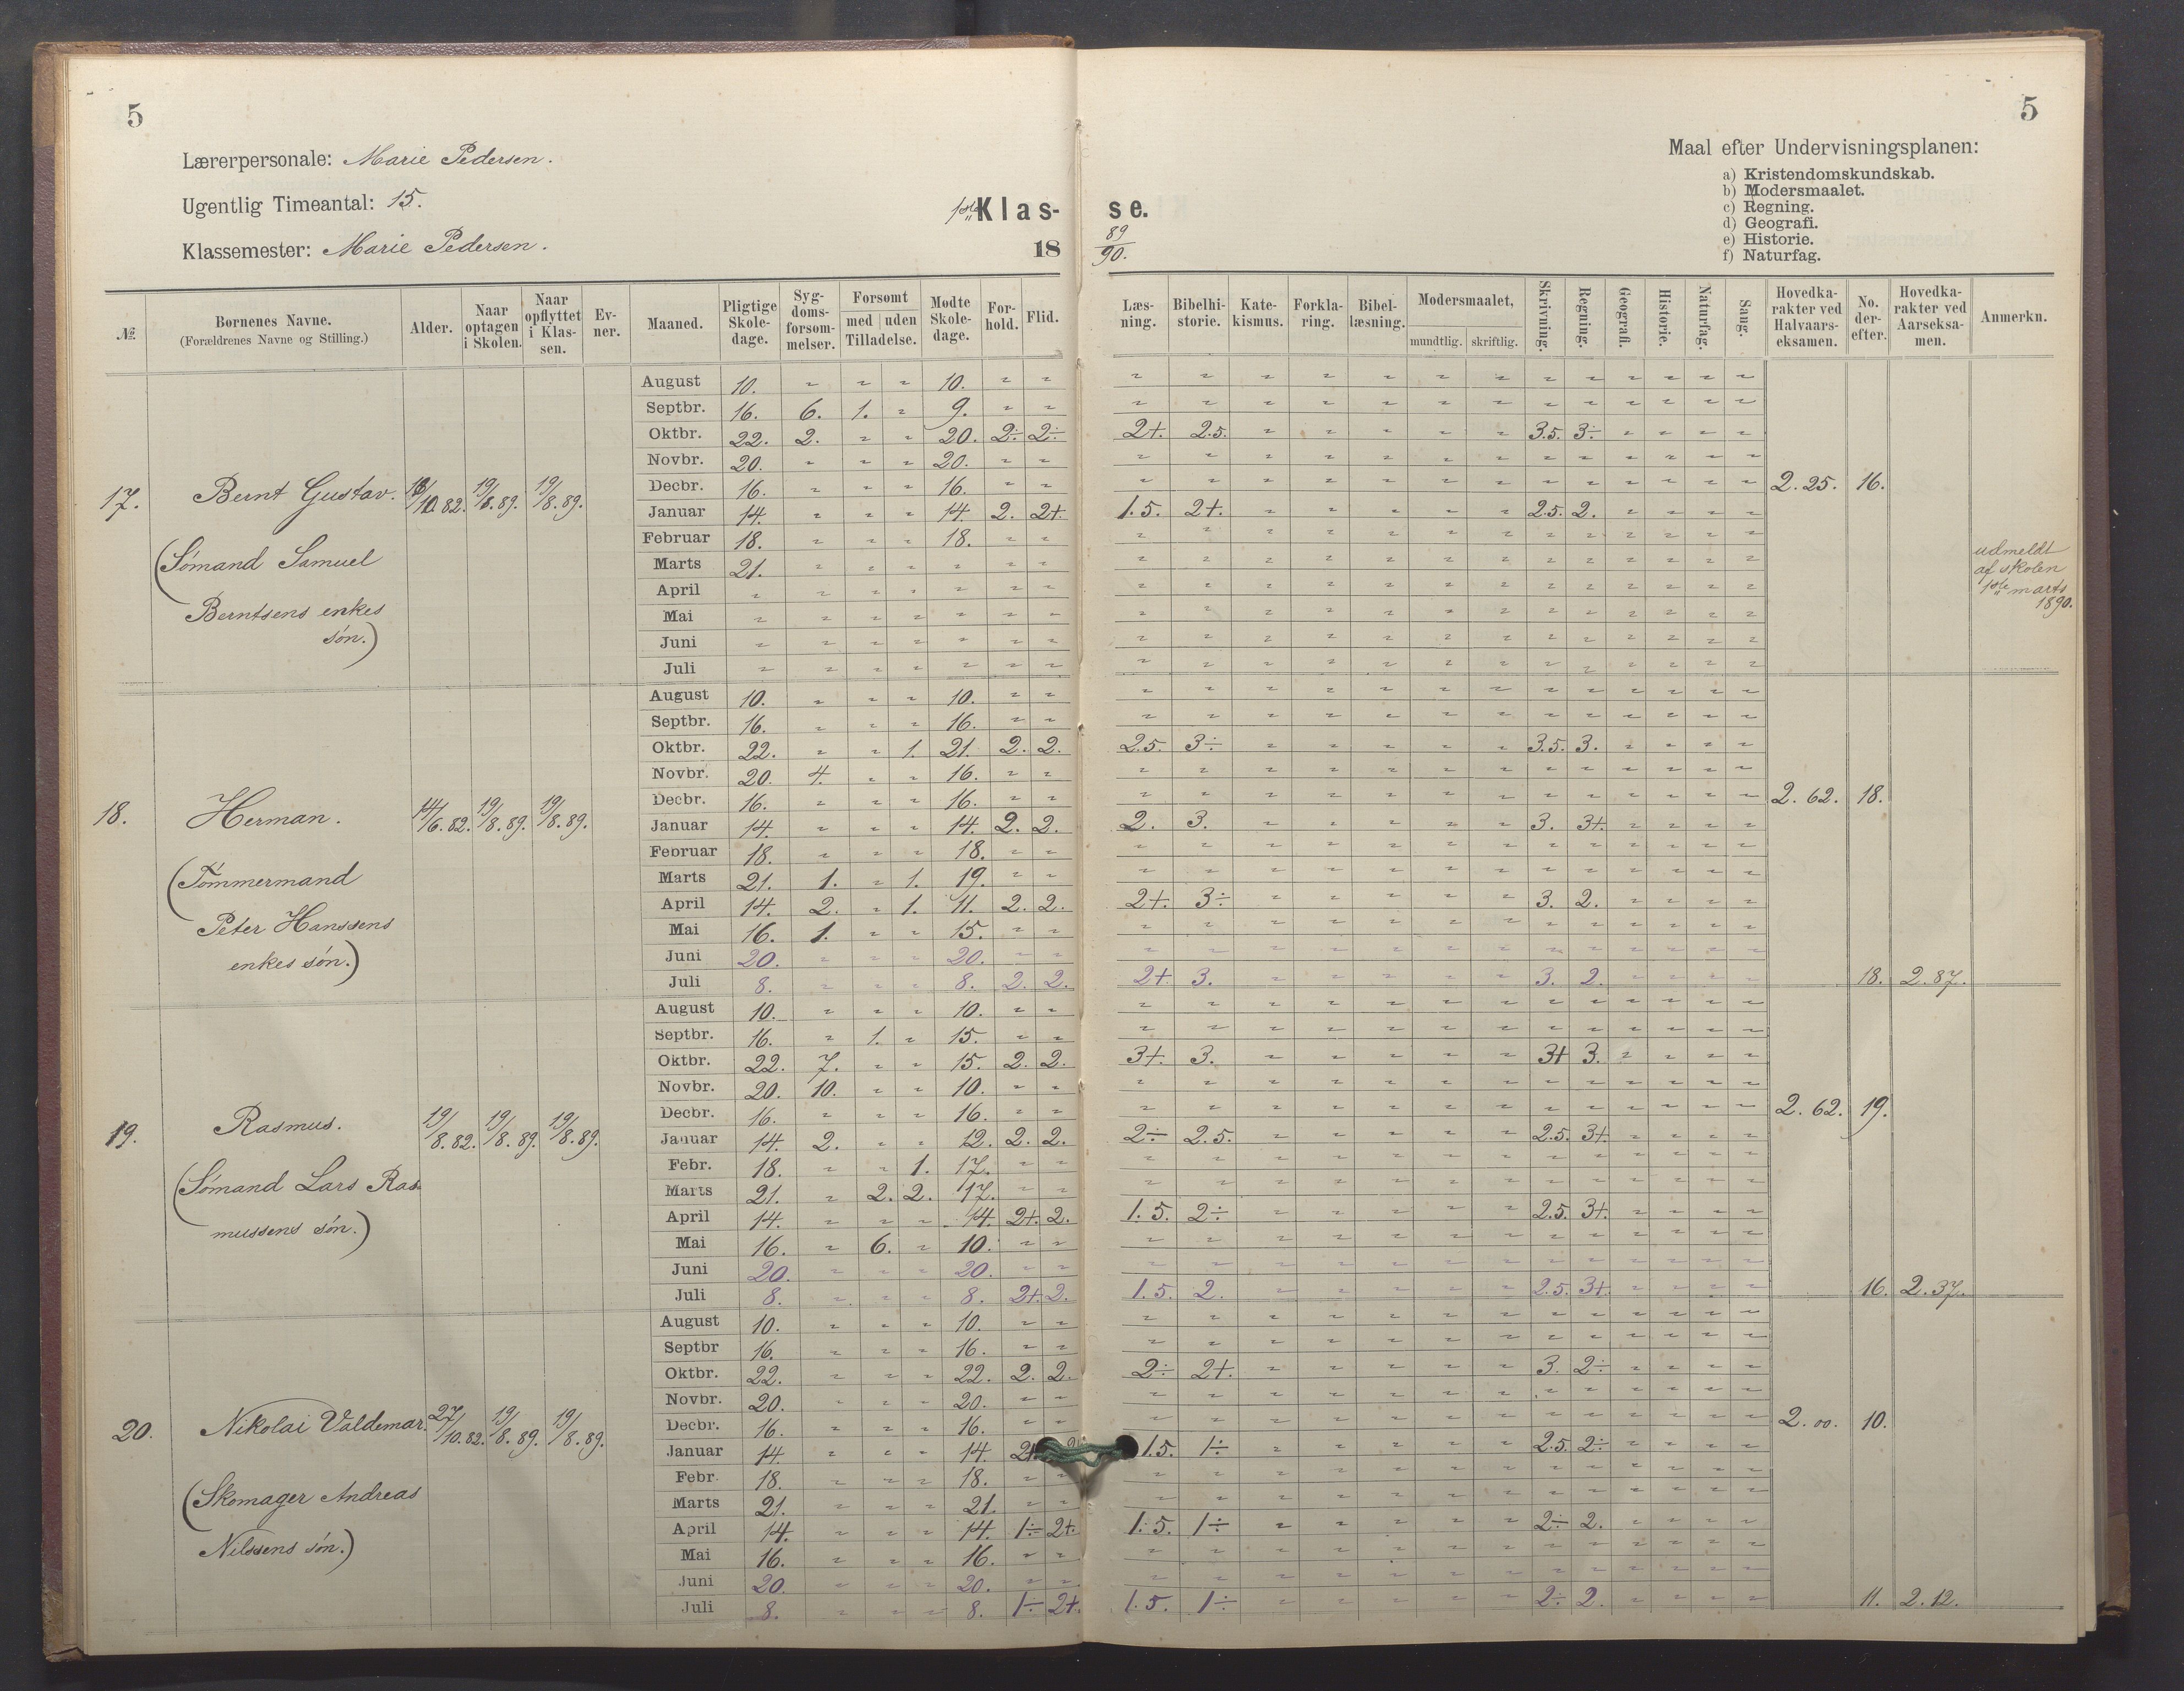 5
5
Lærerpersonale: Marie Pedersen.
Ugentlig Timeantal: 15.
Klassemester: Marie Pedersen.
1ste Klas- se.
18 89/90.
Maal efter Undervisningsplanen:
a) Kristendomskundskab.
b) Modersmaalet.
c) Regning.
d) Geografi.
e) Historie.
f) Naturfag.
№ Børnenes Navne. (Forældrenes Navne og Stilling.) Alder. Naar optagen i Skolen. Naar opflyttet i Klassen. Evner. Maaned. Pligtige Skoledage. Sygdomsforsømmelser. Forsømt med uden Tilladelse. Mødte Skoledage. Forhold. Flid. Læsning. Bibelhistorie. Katekismus. Forklaring. Bibellæsning. Modersmaalet, mundtlig. skriftlig. Skrivning. Regning. Geografi. Historie. Naturfag. Sang. Hovedkarakter ved Halvaarseksamen. No. derefter. Hovedkarakter ved Aarseksamen. Anmerkn.
17. Bernt Gustav. /10.82. 19/8.89. 19/8.89.
(Sømand Samuel
Berntsens enkes
søn.)
August 10. " " " 10. " " " " " " " " " " " " " " "
Septbr. 16. 6. 1. " 9. " " " " " " " " " " " " " " "
Oktbr. 22. 2. " " 20. 2÷ 2÷ 2+. 2.5. " " " " " 3.5. 3÷ " " " "
Novbr. 20. " " " 20. " " " " " " " " " " " " " " "
Decbr. 16. " " " 16. " " " " " " " " " " " " " " " 2.25. 16.
Januar 14. " " " 14. 2. 2+. 1.5. 2+. " " " " " 2.5. 2. " " " "
Februar 18. " " " 18. " " " " " " " " " " " " " " "
Marts 21. " " " " " " " " " " " " " " " " " " "
April " " " " " " " " " " " " " " " " " " " "
Mai " " " " " " " " " " " " " " " " " " " "
Juni " " " " " " " " " " " " " " " " " " " "
Juli " " " " " " " " " " " " " " " " " " " "
udmeldt
af skolen
1ste marts
1890.
18. Herman. 14/6.82. 19/8.89. 19/8.89.
(Tømmermand
Peter Hanssens
enkes søn.)
August 10. " " " 10. " " " " " " " " " " " " " " "
Septbr. 16. " " " 16. " " " " " " " " " " " " " " "
Oktbr. 22. " " 1. 21. 2. 2. 2.5. 3÷ " " " " " 3.5. 3. " " " "
Novbr. 20. 4. " " 16. " " " " " " " " " " " " " " "
Decbr. 16. " " " 16. " " " " " " " " " " " " " " " 2.62. 18.
Januar 14. " " " 14. 2. 2. 2. 3. " " " " " 3. 3+. " " " "
Februar 18. " " " 18. " " " " " " " " " " " " " " "
Marts 21. 1. " 1. 19. " " " " " " " " " " " " " " "
April 14. 2. " 1. 11. 2. 2. 2+. 3÷ " " " " " 3. 2. " " " "
Mai 16. 1. " " 15. " " " " " " " " " " " " " " "
Juni 20. " " " 20. " " " " " " " " " " " " " " "
Juli 8. " " " 8. 2. 2. 2+. 3. " " " " " 3. 2. " " " " 18. 2.87.
19. Rasmus. 19/8.82. 19/8.89. 19/8.89.
(Sømand Lars Ras-
mussens søn.)
August 10. " " " 10. " " " " " " " " " " " " " " "
Septbr. 16. " 1. " 15. " " " " " " " " " " " " " " "
Oktbr. 22. 7. " " 15. 2. 2. 3+. 3. " " " " " 3+ 3. " " " "
Novbr. 20. 10. " " 10. " " " " " " " " " " " " " " "
Decbr. 16. " " " 16. " " " " " " " " " " " " " " " 2.62. 19.
Januar 14. 2. " " 12. 2. 2. 2÷ 2.5. " " " " " 2.5. 3+. " " " "
Febr. 18. " " 1. 17. " " " " " " " " " " " " " " "
Marts 21. " 2. 2. 17. " " " " " " " " " " " " " " "
April 14. " " " 14. 2+. 2. 1.5. 2÷ " " " " " 2.5. 3+. " " " "
Mai 16. " 6. " 10. " " " " " " " " " " " " " " "
Juni 20. " " " 20. " " " " " " " " " " " " " " "
Juli 8. " " " 8. 2+. 2. 1.5. 2. " " " " " 2.5. 3+. " " " " 16. 2.37.
20. Nikolai Valdemar. 27/10.82. 19/8.89. 19/8.89.
(Skomager Andreas
Nilssens søn.)
August 10. " " " 10. " " " " " " " " " " " " " " "
Septbr 16. " " " 16. " " " " " " " " " " " " " " "
Oktbr. 22. " " " 22. 2. 2. 2÷ 2+. " " " " " 3. 2÷ " " " "
Novbr. 20. " " " 20. " " " " " " " " " " " " " " "
Decbr. 16. " " " 16. " " " " " " " " " " " " " " " 2.00. 10.
Januar 14. " " " 14. 2+. 1.5. 1÷ " " " " " 2.5. 2÷ " " " "
Febr. 18. " " " 18. " " " " " " " " " " " " " " "
Marts 21. " " " 21. " " " " " " " " " " " " " " "
April 14. " " " 14. 1÷ 2+. 1.5. 1÷ " " " " " 2÷ 2. " " " "
Mai 16. " " " 16. " " " " " " " " " " " " " " "
Juni 20. " " " 20. " " " " " " " " " " " " " " "
Juli 8. " " " 8. 1÷ 2+. 1.5. 1÷ " " " " " 2÷ 2. " " " " 11. 2.12.